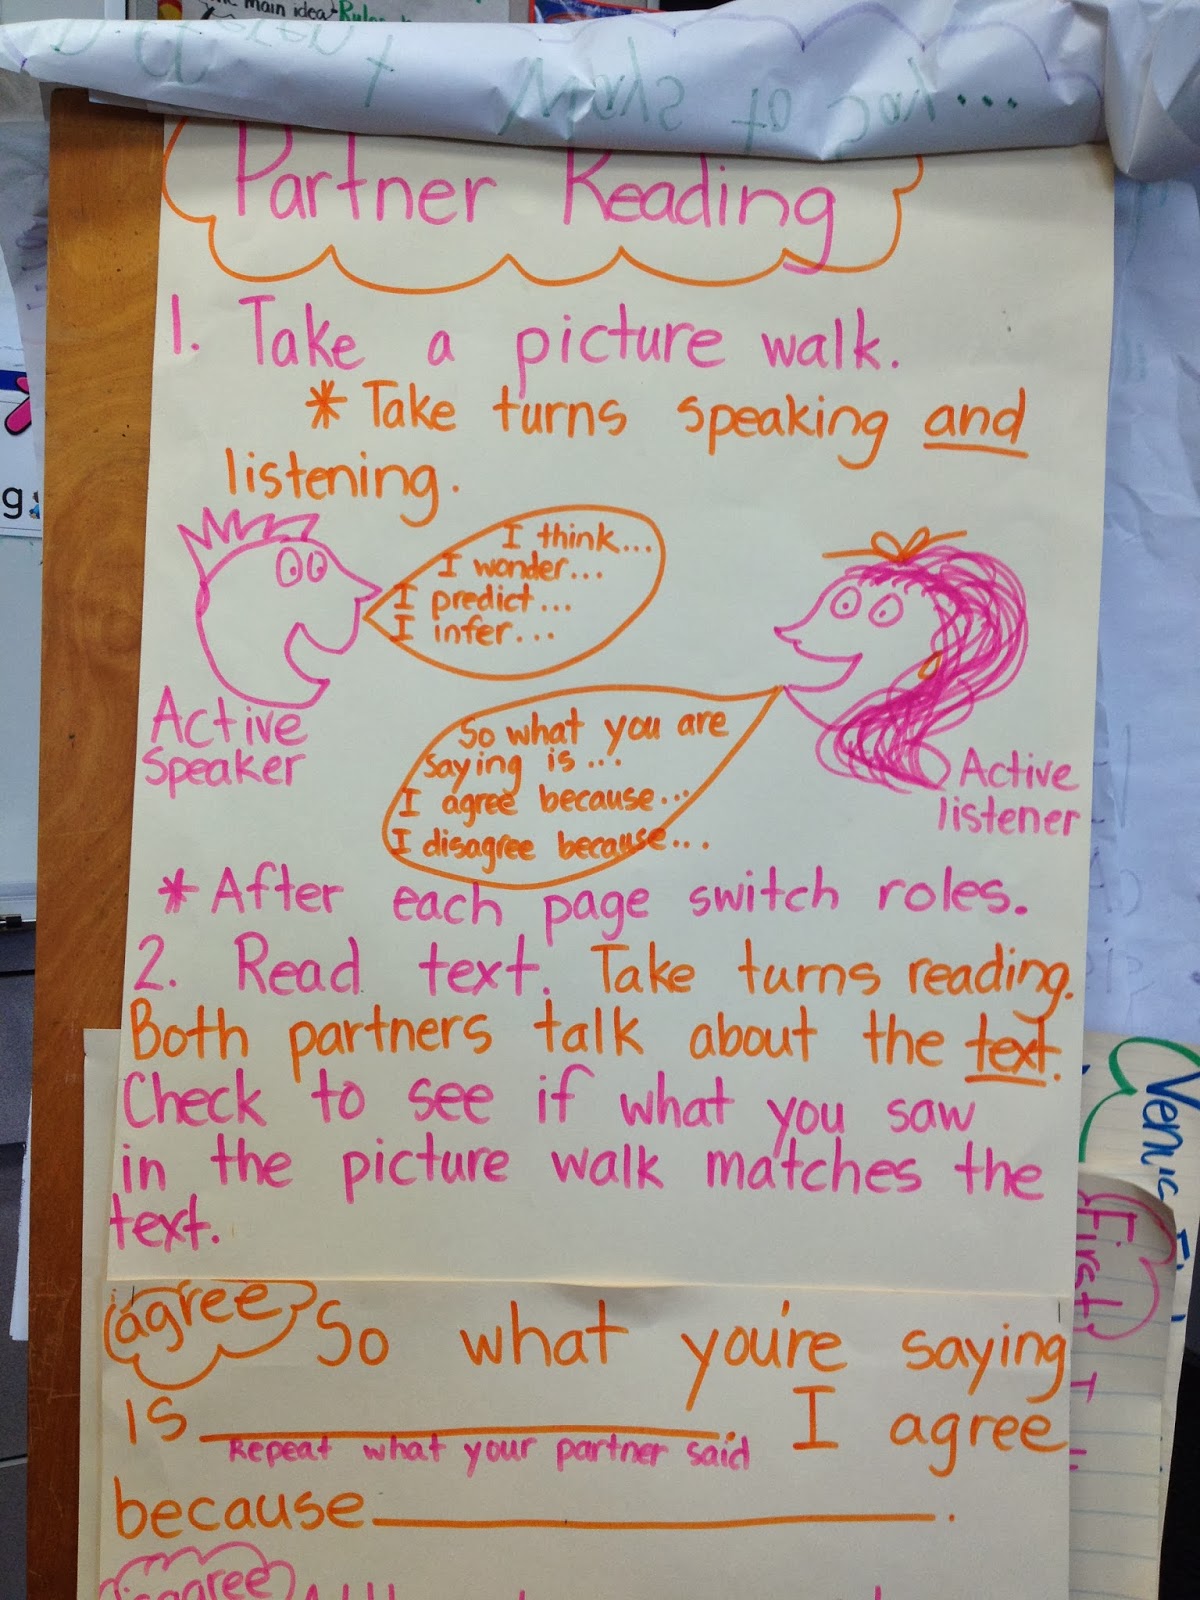 main idea
Ways to ask...
Partner Reading
1. Take a picture walk.
* Take turns speaking and
listening.
I think...
I wonder...
I predict...
I infer...
Active
Speaker
So what you are
saying is...
I agree because...
I disagree because...
Active
listener
* After each page switch roles.
2. Read text. Take turns reading.
Both partners talk about the text.
Check to see if what you saw
in the picture walk matches the
text.
agree So what you're saying
is ____. I agree
Repeat what your partner said
because ____.
disagree
Venic
First
I
g